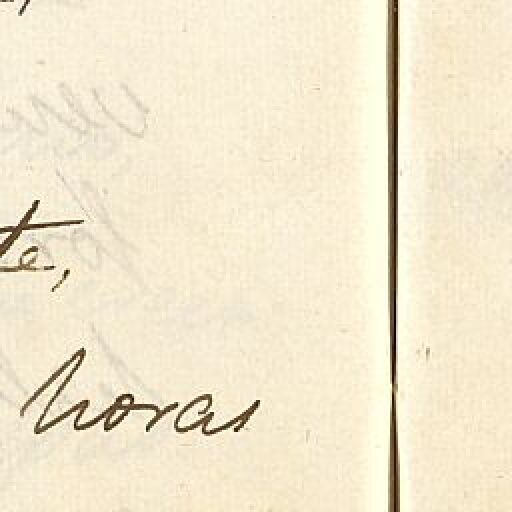 te,
horas